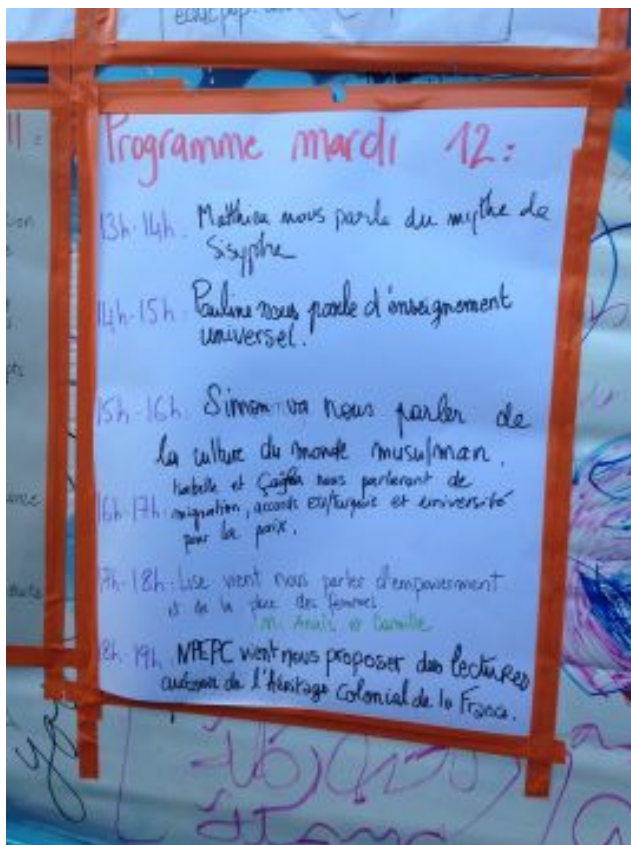 educpop
Programme mardi 12 :
13h-14h. Matthieu nous parle du mythe de
Sisyphe
14h-15h. Pauline nous parle d'enseignement
universel.
15h-16h. Simon va nous parler de
la culture du monde musulman.
Isabelle et Çağla nous parleront de
16h-17h. migration, accords EU/Turquie et université
pour la paix.
17h-18h. Lise vient nous parler d'empowerment
et de la place des femmes
Anaïs et Camille
18h-19h. NPEPC vient nous proposer des lectures
autour de l'héritage colonial de la France.